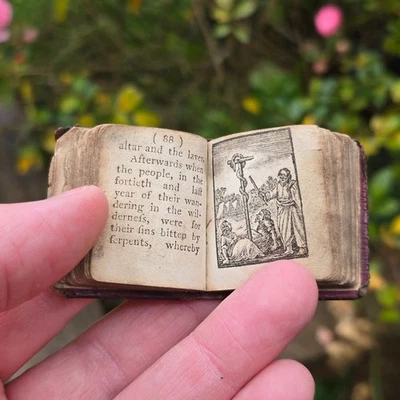 ( 88 )
altar and the laver.
Afterwards when
the people, in the
fortieth and last
year of their wan-
dering in the wil-
derneſs, were for
their ſins bitten by
ſerpents, whereby